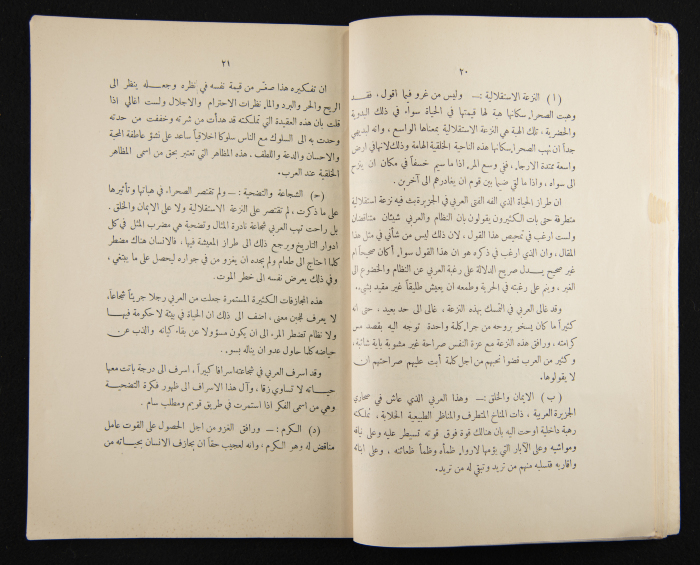 ٢٠
(أ) النزعة الاستقلالية :— وليس من غرو فيما اقول ، فقد
وهبت الصحراء سكانها هبة لها قيمتها في الحياة سواء في ذلك البدوية
والحضرية ، تلك الهبة هي النزعة الاستقلالية بمعناها الواسع ، وانه لبديهي
جداً ان تهب الصحراء سكانها هذه الناحية الخلقية الهامة وذلك لانها في ارض
واسعة ممتدة الارجاء . ففي وسع المرء اذا ما سيم خسفاً في مكان ان ينزح
الى سواه ، واذا ما لقي ضيماً بين قوم ان يغادرهم الى آخرين .
ان طراز الحياة الذي الفه الفتى العربي في الجزيرة بث فيه نزعة استقلالية
متطرفة حتى بات الكثيرون يقولون بان النظام والعربي شيئان متناقضان
ولست ارغب في تمحيص هذا القول ، لان ذلك ليس من شأني في مثل هذا
المقال ، وان الذي ارغب في ذكره هو ان هذا القول سواء أكان صحيحاً ام
غير صحيح يدل صريح الدلالة على رغبة العربي عن النظام والخضوع الى
الغير ، وينم على رغبته في الحرية وطمعه ان يعيش طليقاً غير مقيد بشيء .
وقد غالى العربي في التمسك بهذه النزعة ، غالى الى حد بعيد ، حتى انه
كثيراً ما كان يسخو بروحه من جراء كلمة واحدة توجه اليه بقصد مس
كرامته ، ورافق هذه النزعة مع عزة النفس صراحة غير مشوبة باية شائبة ،
وكثير من العرب قضوا نحبهم من اجل كلمة أبت عليهم صراحتهم ان
لا يقولوها .
(ب) الايمان والخلق :— وهذا العربي الذي عاش في صحاري
الجزيرة العربية ، ذات المناخ المتطرف والمناظر الطبيعية الخلابة ، تملكته
رهبة داخلية اوحت اليه بان هنالك قوة فوق قوته تسيطر عليه وعلى نياقه
ومواشيه وعلى الآبار التي يؤمها لارواء ظمأه وظمأ ظعائنه ، وعلى ابنائه
واقاربه فتسلبه منهم من تريد وتبقي له من تريد .
٢١
ان تفكيره هذا صغّر من قيمة نفسه في نظره وجعله ينظر الى
الريح والحر والبرد والماء نظرات الاحترام والاجلال ولست اغالي اذا
قلت بان هذه العقيدة التي تملكته قد هدأت من شرته وخففت من حدته
وحدت به الى السلوك مع الناس سلوكا اخلاقياً ساعد على نشوء عاطفة المحبة
والاحسان والدعة واللطف . هذه المظاهر التي تعتبر بحق من اسمى المظاهر
الخلقية عند العرب .
(ح) الشجاعة والتضحية :— ولم تقتصر الصحراء في هباتها وتأثيرها
على ما ذكرت ، لم تقتصر على النزعة الاستقلالية ولا على الايمان والخلق .
بل راحت تهب العربي شجاعة نادرة المثال وتضحية هي مضرب المثل في كل
ادوار التاريخ ويرجع ذلك الى طراز المعيشة فيها ، فالانسان هناك مضطر
كلما احتاج الى طعام ولم يجده ان يغزو من في جواره ليحصل على ما يبتغي ،
وفي ذلك يعرض نفسه الى خطر الموت .
هذه المجازفات الكثيرة المستمرة جعلت من العربي رجلا جريئاً شجاعاً ،
لا يعرف للجبن معنى ، اضف الى ذلك ان الحياة في بيئة لا حكومة فيها
ولا نظام تضطر المرء الى ان يكون مسؤولا عن بقاء كيانه والذب عن
حياضه كلما حاول عدو ان يناله بسوء .
وقد اسرف العربي في شجاعته اسرافا كبيراً ، اسرف الى درجة باتت معها
حياته لا تساوي زقا ، وآل هذا الاسراف الى ظهور فكرة التضحية
وهي من اسمى الفكر اذا استمرت في طريق قويم ومطلب سام .
(د) الكرم :— ورافق الغزو من اجل الحصول على القوت عامل
مناقض له وهو الكرم ، وانه لعجيب حقاً ان يجازف الانسان بحياته من